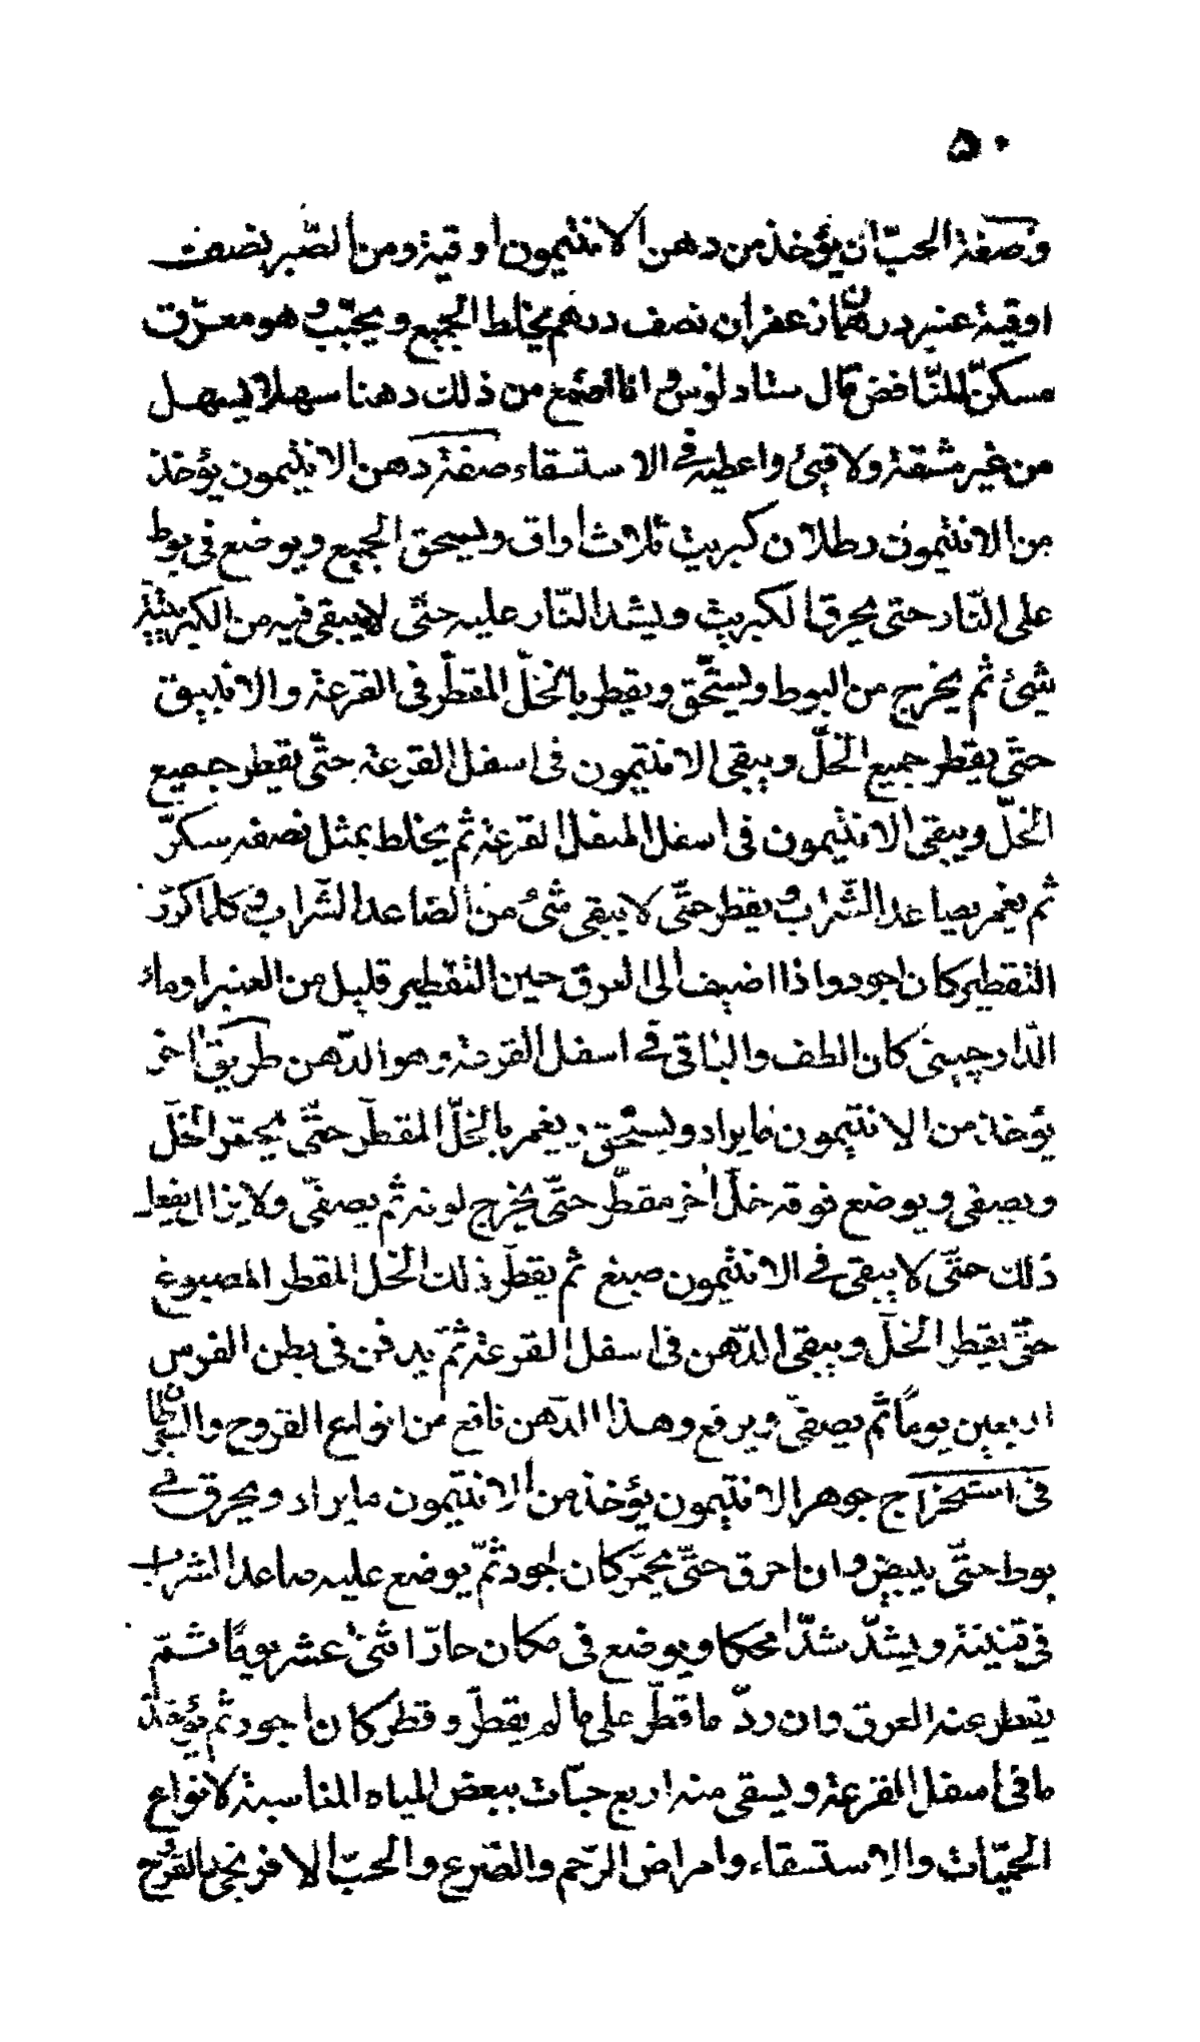 ۵۰
وصفة الحبّ ان يؤخذ من دهن الانتيمون اوقية ومن الصّبر نصف
اوقية عنبر درهمان زعفران نصف درهم يخلط الجميع ويحبّب وهو معرّق
مسكّن للنّافض قال سنادلوس وانا اصنع من ذلك دهنا سهلا يسهل
من غير مشقة ولا قيئ واعطيه في الاستسقاء صفة دهن الانتيمون يؤخذ
من الانتيمون رطلان كبريت ثلاث اواق ويسحق الجميع ويوضع في بوط
على النّار حتى يحرق الكبريت ويشد النّار عليه حتّى لا يبقى فيه من الكبريتية
شئ ثم يخرج من البوط ويستحق ويقطر بالخلّ المقطّر في القرعة والانبيق
حتّى يقطر جميع الخلّ ويبقى الانتيمون في اسفل القرعة حتّى يقطر جميع
الخلّ ويبقى الانتيمون في اسفل القرعة ثم يخلط بمثل نصفه سكّر
ثم يغمر بصاعد الشّراب ويقطر حتّى لا يبقى شئ من الصاعد الشّراب وكلما كرّر
التقطير كان اجود واذا اضيف الى العرق حين التقطير قليل من العنبر او ماء
الدارچيني كان الطف والباقي في اسفل القرعة وهو الدّهن طريق اخر
يؤخذ من الانتيمون ما يراد ويستحق ويغمر بالخلّ المقطّر حتّى يحمّر الخلّ
ويصفى ويوضع فوقه خلّ اخر مقطّر حتّى يخرج لونه ثم يصفّى ولا يزال يفعل
ذلك حتّى لا يبقى في الانتيمون صبغ ثم يقطّر ذلك الخل المقطر المصبوغ
حتّى يقطر الخلّ ويبقى الدّهن في اسفل القرعة ثمّ يدفن في بطن الفرس
اربعين يومًا ثم يصفّى ويرفع وهذا الدّهن نافع من انواع القروح والسّرطان
في استخراج جوهر الانتيمون يؤخذ من الانتيمون ما يراد ويحرق في
بوط حتّى يبيض وان احرق حتّى يحمّر كان اجود ثمّ يوضع عليه صاعد الشراب
في قنينة ويشدّ شدّا محكما ويوضع في مكان حارّ اثنى عشر يومًا ثمّ
يقطر عنه العرق وان ردّ ما قطّر على ما لم يقطّر وقطر كان اجود ثم يؤخذ
ما في اسفل القرعة ويسقى منه اربع حبّات ببعض المياه المناسبة لانواع
الحميّات والاستسقاء وامراض الرّحم والصّرع والحبّ الافرنجي والقروح